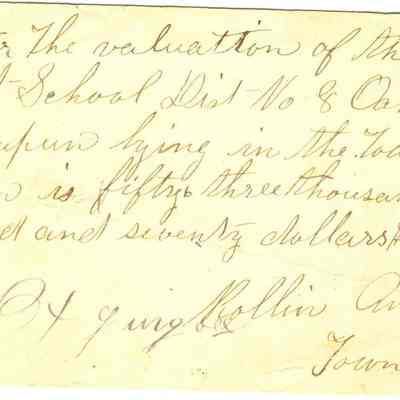 The valuation of th
School Dist No 8 Oa
upun lying in the To
is fifty three thousan
d and seventy dollars
Rollin
Town